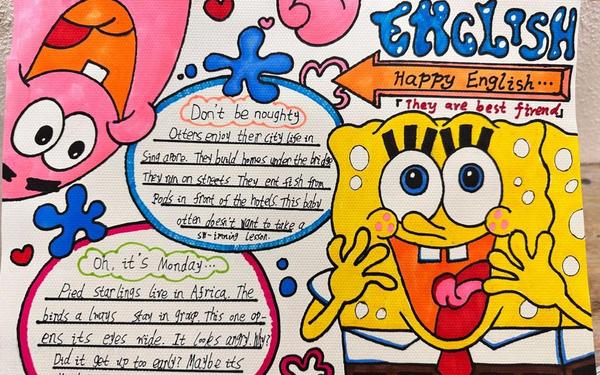 ENGLISH
Happy English...
「They are best firend」
Don't be noughty
Otters enjoy their city life in
Sing apore. They build homes under the bridge
They run on streets They eat fish from
Pods in front of the hotels This baby
otten doesn't want to take a
sw-imming lesson.
Oh, it's Monday...
Pied starlings live in Africa. The
birds always stay in group. This one op-
ens its eyes wide. It looks angry. Why?
Did it get up too early? Maybe its